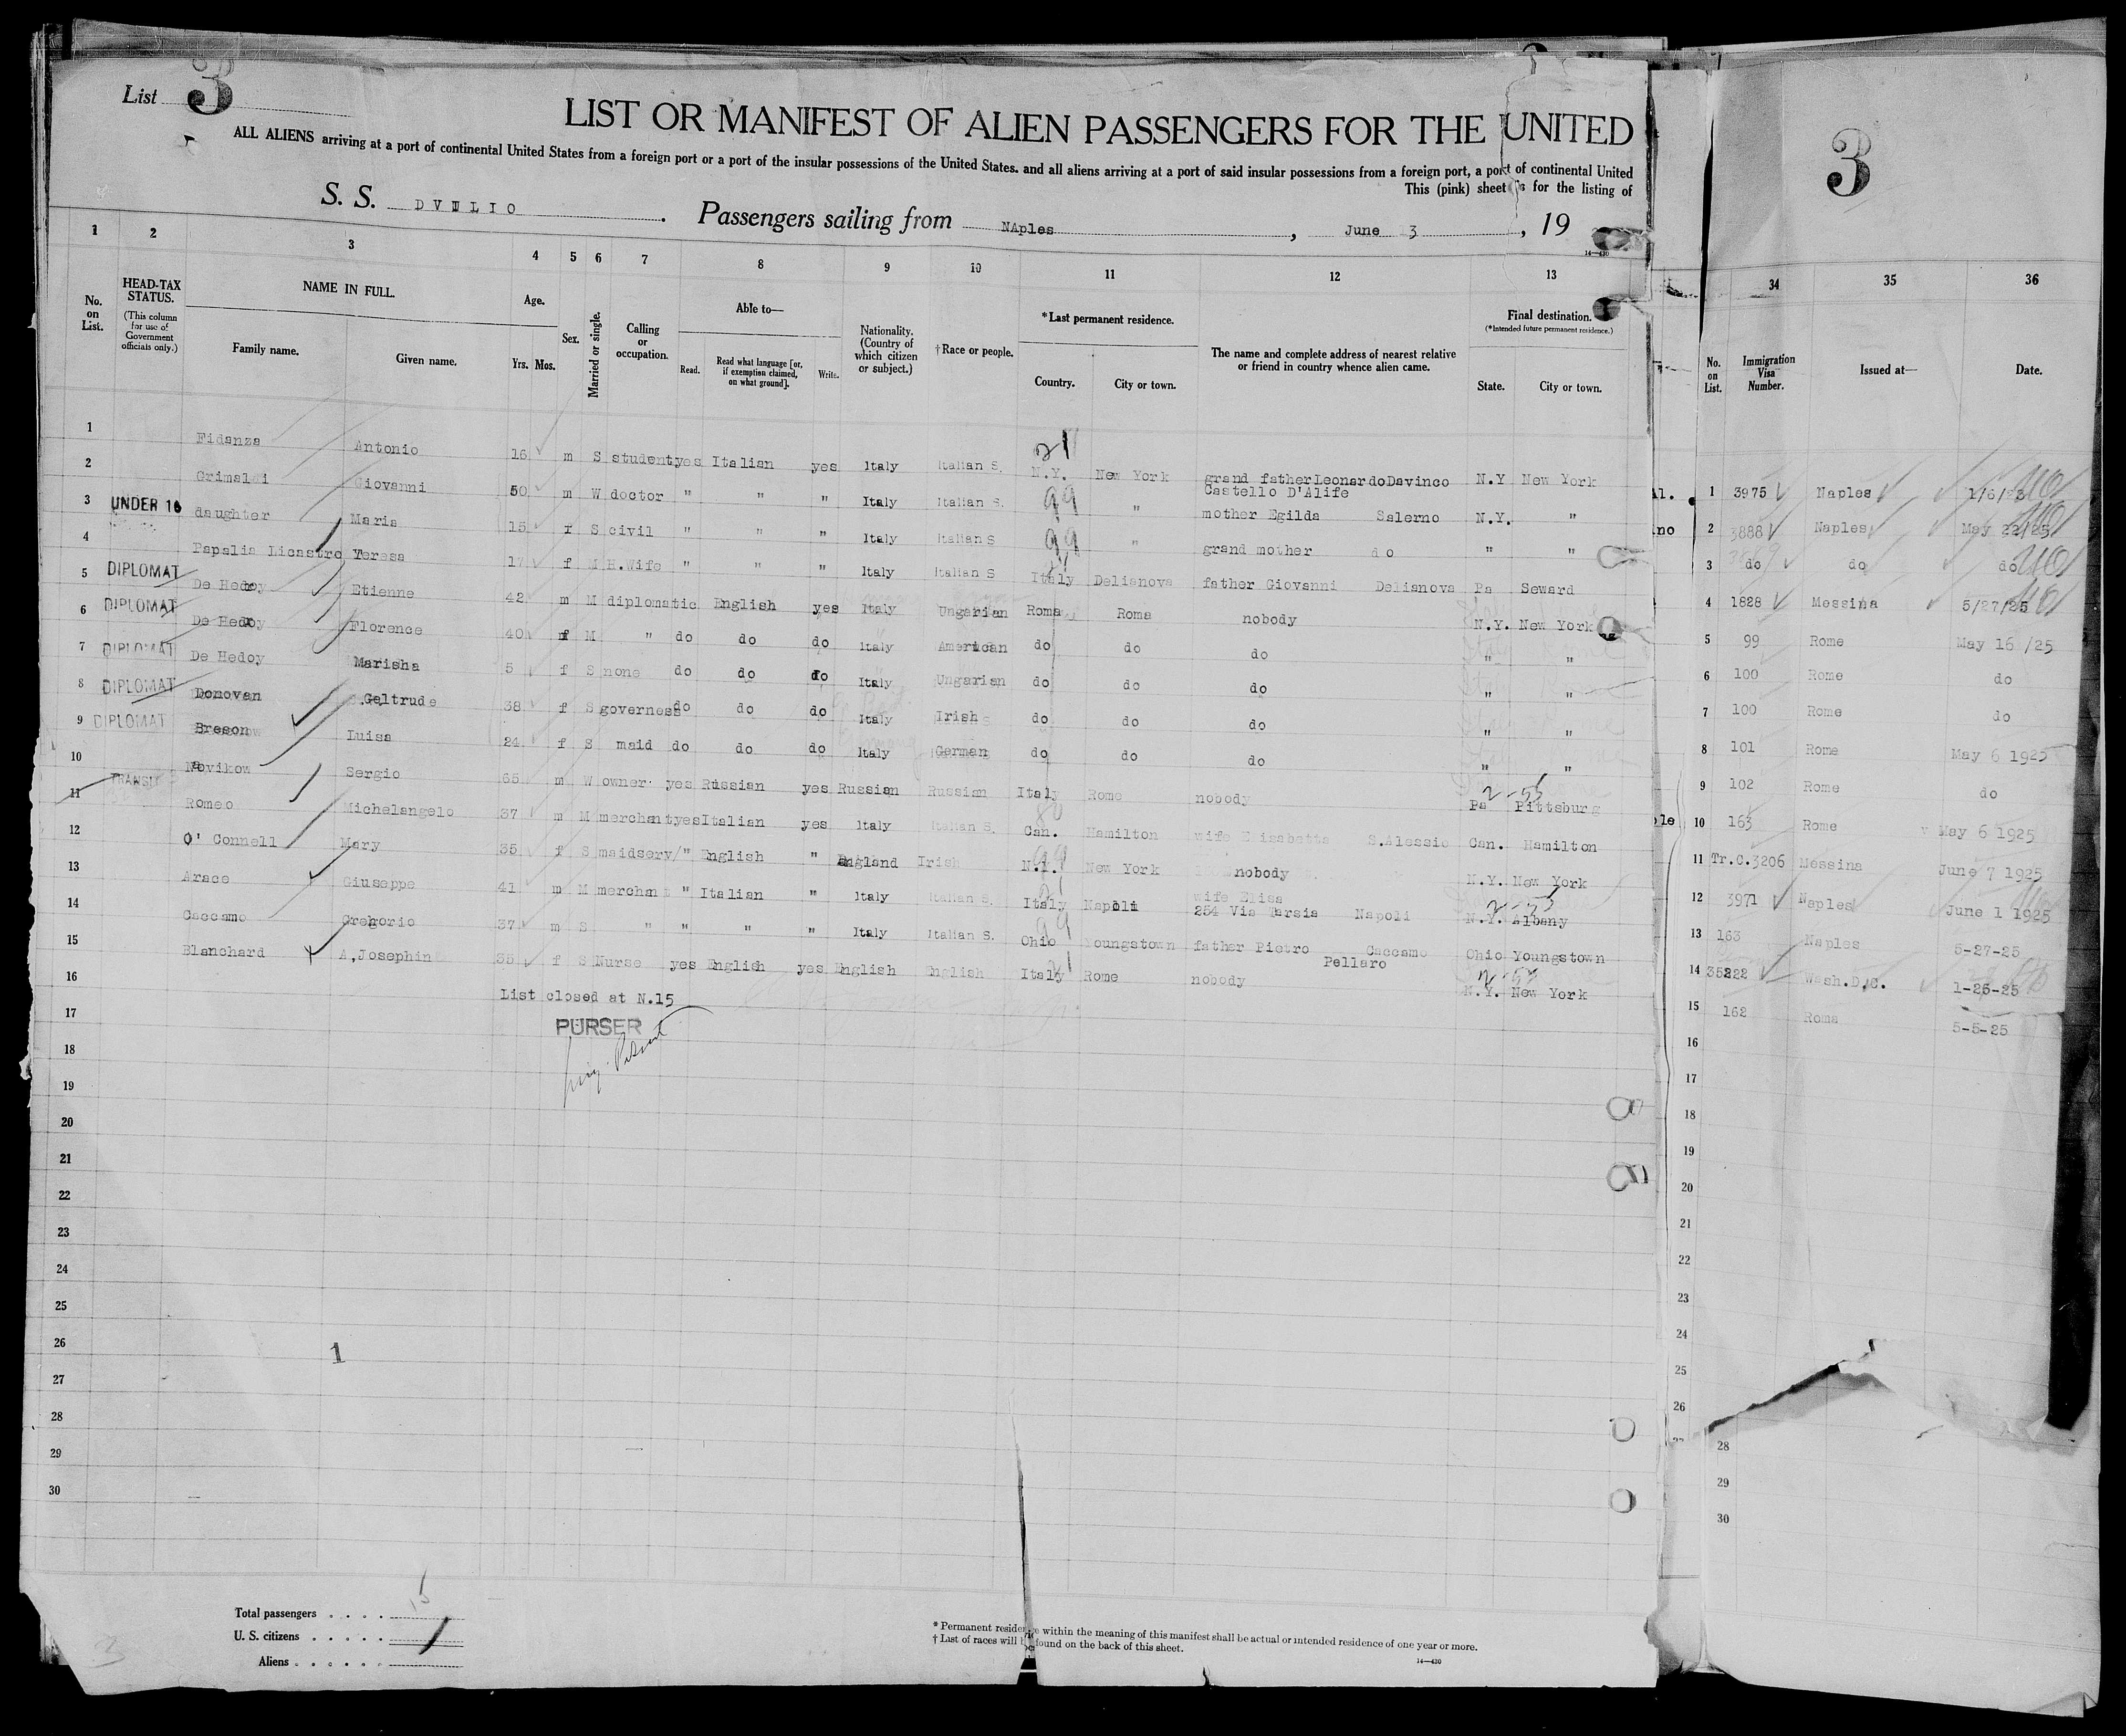 List 3
LIST OR MANIFEST OF ALIEN PASSENGERS FOR THE UNITED
ALL ALIENS arriving at a port of continental United States from a foreign port or a port of the insular possessions of the United States. and all aliens arriving at a port of said insular possessions from a foreign port, a port of continental United
This (pink) sheet is for the listing of
S. S. DVILIO. Passengers sailing from NAples, June 3, 19
14—430
3
1 2 3 4 5 6 7 8 9 10 11 12 13 34 35 36
No. on List.
HEAD-TAX STATUS.
(This column for use of Government officials only.)
NAME IN FULL.
Family name. Given name.
Age.
Yrs. Mos.
Sex.
Married or single.
Calling or occupation.
Able to—
Read. Read what language [or, if exemption claimed, on what ground]. Write.
Nationality. (Country of which citizen or subject.)
†Race or people.
*Last permanent residence.
Country. City or town.
The name and complete address of nearest relative or friend in country whence alien came.
Final destination.
(*Intended future permanent residence.)
State. City or town.
No. on List.
Immigration Visa Number.
Issued at—
Date.
1 Fidanza Antonio 16 m S student yes Italian yes Italy Italian S. N.Y. New York grand father Leonardo Davinco Castello D'Alife N.Y New York
2 Grimaldi Giovanni 50 m W doctor " " " Italy Italian S. 99 " mother Egilda Salerno N.Y. "
3 UNDER 16 daughter Maria 15 f S civil " " " Italy Italian S 99 " grand mother do " "
4 Papalia Licastro Teresa 17 f M H.Wife " " " Italy Italian S Italy Delianova father Giovanni Delianova Pa Seward
5 DIPLOMAT De Hedoy Etienne 42 m M diplomatic English yes Italy Ungarian Roma Roma nobody N.Y. New York
6 DIPLOMAT De Hedoy Florence 40 f M " do do do Italy American do do do " "
7 DIPLOMAT De Hedoy Marisha 5 f S none do do do Italy Ungarian do do do " "
8 DIPLOMAT Donovan Geltrude 38 f S governess do do do Italy Irish do do do " "
9 DIPLOMAT Breson Luisa 24 f S maid do do do Italy German do do do " "
10 Novikow Sergio 65 m W owner yes Russian yes Russian Russian Italy Rome nobody Pa Pittsburg
11 TRANSIT Romeo Michelangelo 37 m M merchant yes Italian yes Italy Italian S. Can. Hamilton wife Elizabetta S.Alessio Can. Hamilton
12 O' Connell Mary 35 f S maidserv/ " English " England Irish N.Y. New York nobody N.Y. New York
13 Arace Giuseppe 41 m M merchant " Italian " Italy Italian S. Italy Napoli wife Elisa 254 Via Tarsia Napoli N.Y. Albany
14 Caccamo Gregorio 37 m S " " " " Italy Italian S. Ohio Youngstown father Pietro Caccamo Pellaro Ohio Youngstown
15 Blanchard A,Josephin 35 f S Nurse yes English yes English English Italy Rome nobody N.Y. New York
16 List closed at N.15
17 PURSER
18
19
20
21
22
23
24
25
26 1
27
28
29
30
1 3975 Naples 1/6/25
2 3888 Naples May 22/25
3 do do do
4 1828 Messina 5/27/25
5 99 Rome May 16 /25
6 100 Rome do
7 100 Rome do
8 101 Rome May 6 1925
9 102 Rome do
10 163 Rome May 6 1925
11 Tr.C.3206 Messina June 7 1925
12 3971 Naples June 1 1925
13 163 Naples 5-27-25
14 Wash.D.C. 1-26-25
15 162 Roma 5-5-25
16
17
18
19
20
21
22
23
24
25
26
28
29
30
Total passengers . . . . 15
U. S. citizens . . . . .
Aliens . . . . . .
3
* Permanent residence within the meaning of this manifest shall be actual or intended residence of one year or more.
† List of races will be found on the back of this sheet.
14—430